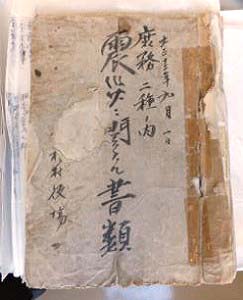 十二年九月一日
庶務二種ノ内
震災ニ関スル書類
木村役場